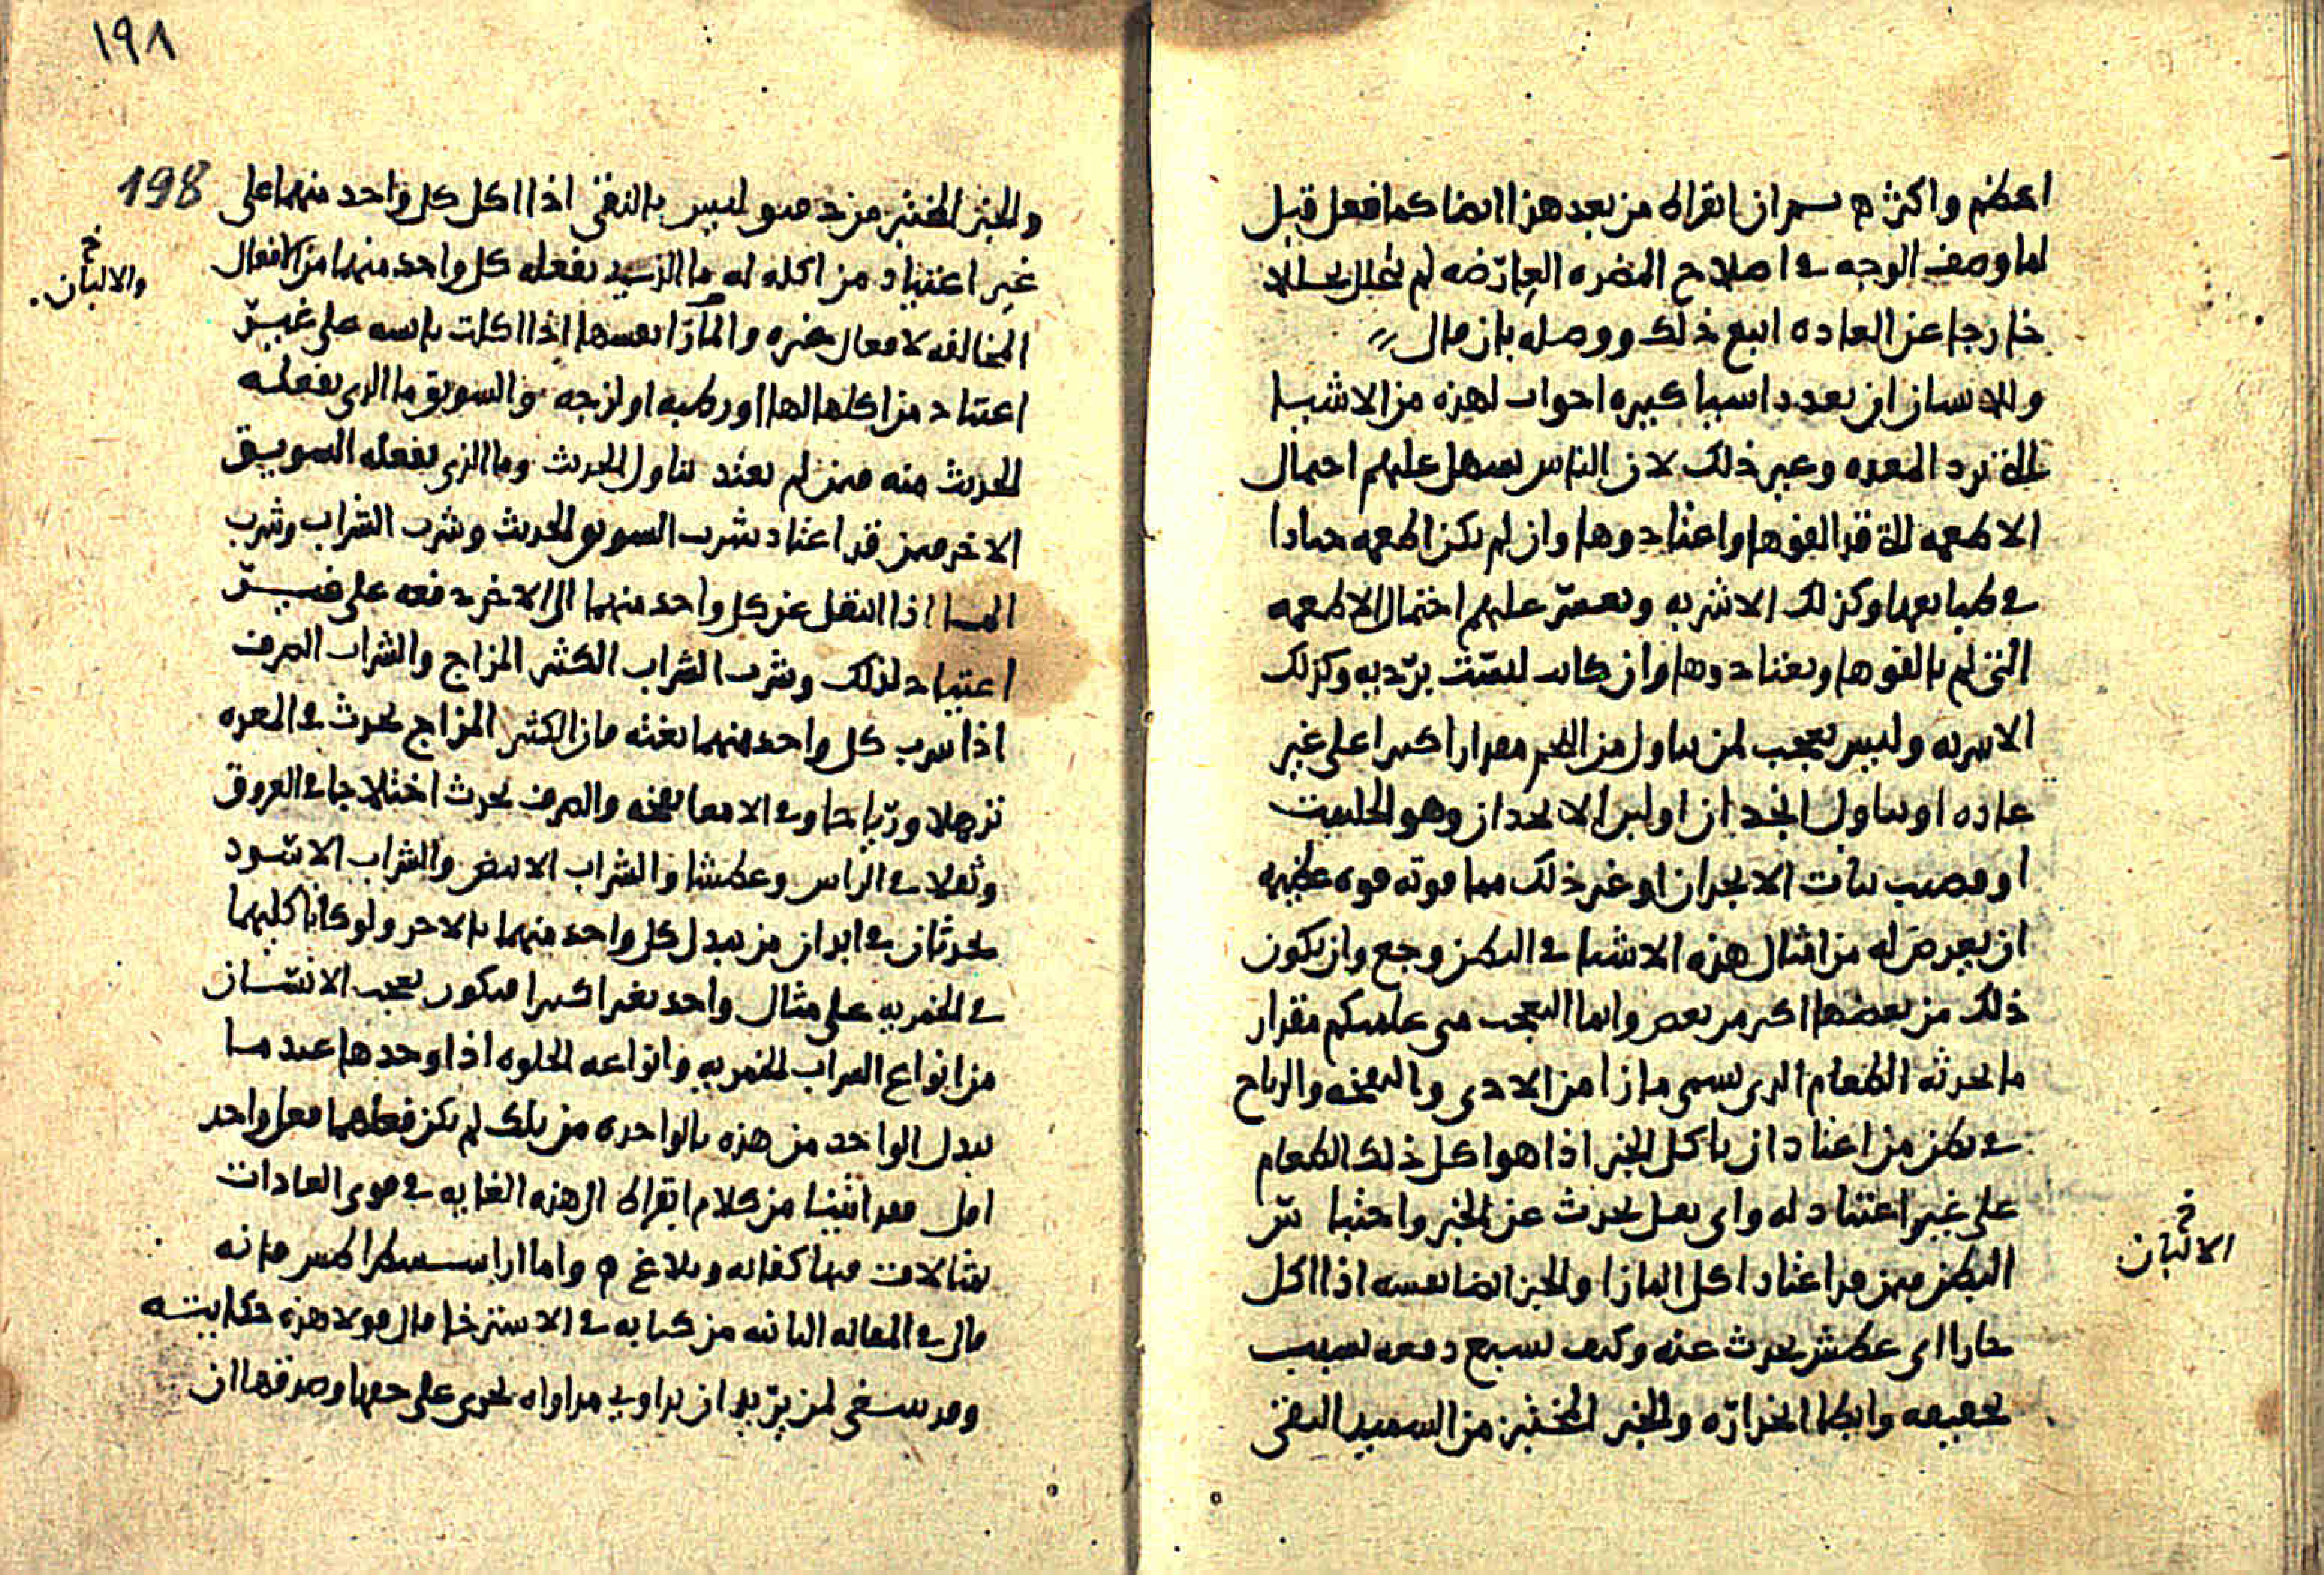 اعظم واكثر ه ثم ان ابقراط من بعد هذا ايضا كما فعل قبل
لما وصف الوجه في اصلاح المضره العارضه لم
خارجا عن العاده اتبع ذلك ووصله بان قال
وللانسان ان يعدد اشيا كثيره اخوات لهذه من الاشيا
التي ترد المعده وغير ذلك لان الناس يسهل عليهم احتمال
الاطعمه التي قد الفوها واعتادوها وان لم يكن اطعمه جيادا
في طبايعها وكذلك الاشربه ويعسر عليهم احتمال الاطعمه
التي لم يالفوها ويعتادوها وان كانت ليست برديه وكذلك
الاشربه وليس بعجب لمن يتناول من اللحم مقدارا كثيرا على غير
عاده او يتناول انجدان او لبن الانجدان وهو الحلتيت
او قضيب نبات الانجدان او غير ذلك مما قوته قوه عظيمه
ان يعرض له من امثال هذه الاشيا في البطن وجع وان يكون
ذلك من بعضها اكثر من بعض وانما العجب متى علمتم كم مقدار
ما يحدثه الطعام الذي يسمى مازا من الاذى والنفخه والرياح
في بطن من اعتاد ان ياكل الخبز اذا هو اكل ذلك الطعام
على غير اعتياد له واي ثقل يحدث عن الخبز واحتباس
البطن ممن قد اعتاد اكل المازا والخبز ايضا نفسه اذا اكل
حارا اي عطش يحدث عنه وكيف يشبع دفعه بسبب
تجفيفه وابطا انحداره والخبز المختبز من السميد النقي
الالبان
١٩٨
198
والخبز المختبز من دقيق ليس بالنقي اذا اكل كل واحد منهما على
غير اعتياد من اكله له ما الذي يفعله كل واحد منهما من الافعال
والالبان
المخالفه لافعال غيره والمازا نفسها اذا اكلت يابسه على غير
اعتياد من اكلها لها او رطبه او لزجه والسويق ما الذي يفعله
الحديث منه ممن لم يعتد تناول الحديث وما الذي يفعله السويق
الاخر ممن قد اعتاد شرب السويق الحديث وشرب الشراب وشرب
الما اذا انتقل عن كل واحد منهما الى الاخر دفعه على غير
اعتياد لذلك وشرب الشراب الكثير المزاج والشراب الصرف
اذا شرب كل واحد منهما بغته فان الكثير المزاج يحدث في المعده
ترهلا ورياحا وفي الامعا نفخه والصرف يحدث اختلاجا في العروق
وثقلا في الراس وعطشا والشراب الابيض والشراب الاسود
يحدثان في ابدان من يبدل كل واحد منهما بالاخر ولو كانا كليهما
في الخمريه على مثال واحد تغيرا كثيرا فيكون يعجب الانسان
من انواع الشراب الخمريه وانواعه الحلوه اذا وجدها عندما
يبدل الواحد من هذه بالواحده من تلك لم يكن فعلهما فعل واحد
اقول قد اتينا من كلام ابقراط الى هذه الغايه في قوى العادات
بمثالات فيها كفايه وبلاغ ه واما اراسسطراطس فانه
قال في المقاله الثانيه من كتابه في الاسترخا قال قولا هذه حكايته
وقد ينبغي لمن يريد ان يداوي مداواه تجري على حقها وصدقها ان